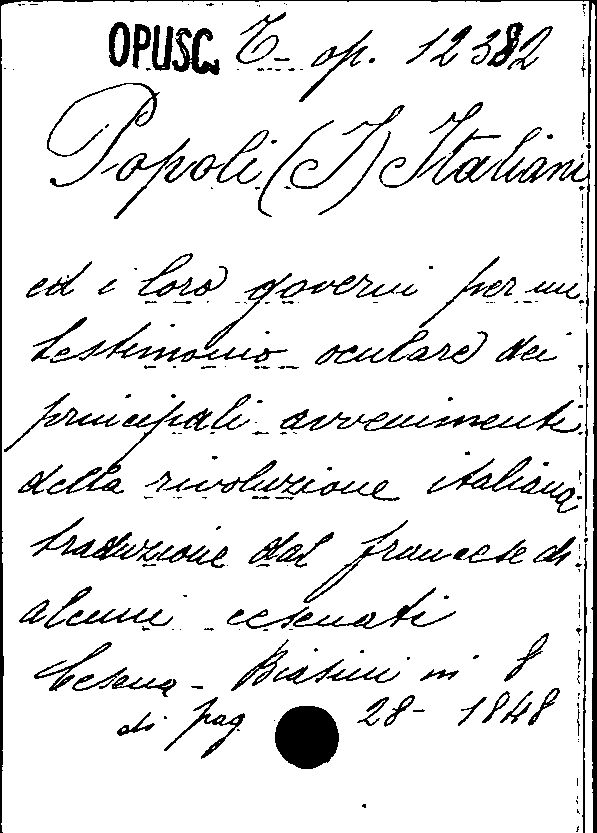 OPUSC. T- op. 12382
Popoli (I) Italiani
ed i loro governi per un
testimonio oculare dei
principali avvenimenti
della rivoluzione italiana
traduzione dal francese di
alcuni cesenati
Cesena - Biasini in 8
di pag 28 - 1848